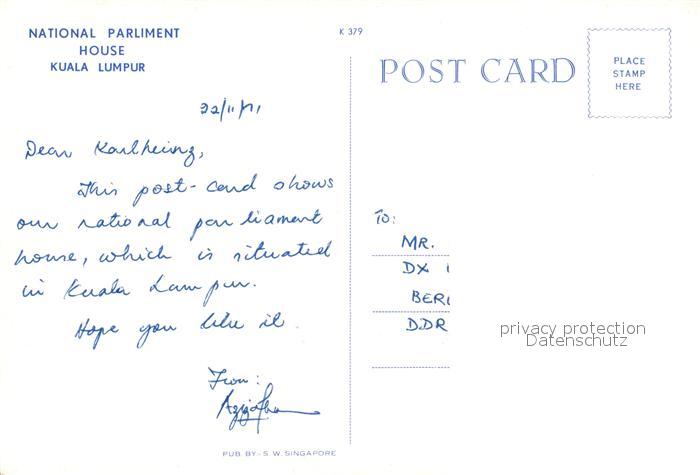 NATIONAL PARLIMENT
HOUSE
KUALA LUMPUR
K 379
POST CARD
PLACE
STAMP
HERE
22/11/71
Dear Karlheinz,
This post-card shows
our national parliament
house, which is situated
in Kuala Lumpur.
Hope you like it.
From:
To:
MR.
DX
BER
D.DR
privacy protection
Datenschutz
PUB. BY:- S. W. SINGAPORE